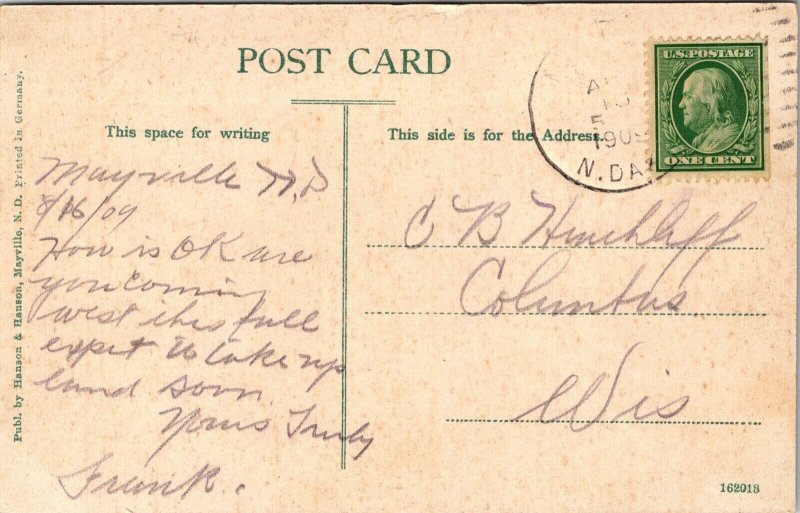 POST CARD
U.S. POSTAGE
ONE CENT
1909
N. DAK
This space for writing
This side is for the Address.
Mayville N.D
8/16/09
How is OK are
you coming
west this fall
expet to take up
land soon.
Yours Truly
Frank.
C B Hinchliff
Columbus
Wis
Publ. by Hanson & Hanson, Mayville, N. D. Printed in Germany.
162018